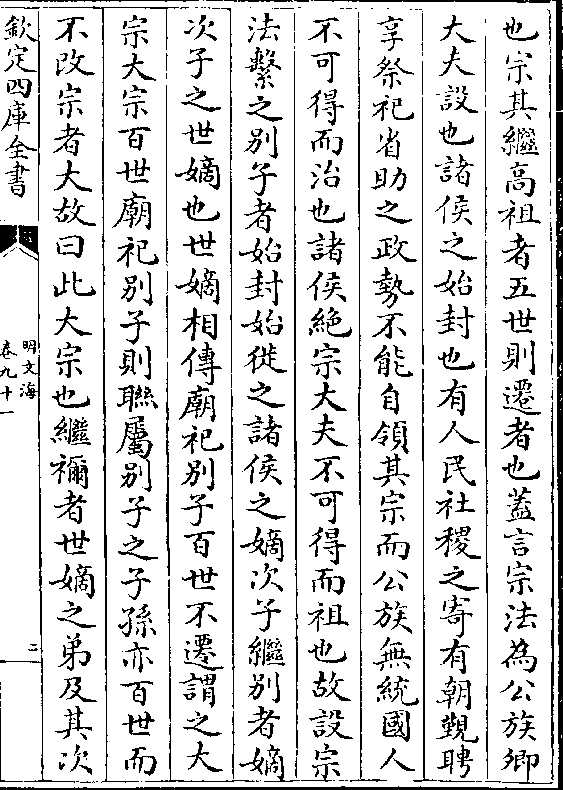 也宗其繼高祖者五世則遷者也蓋言宗法為公族卿
大夫設也諸侯之始封也有人民社稷之寄有朝覲聘
享祭祀省助之政勢不能自領其宗而公族無統國人
不可得而治也諸侯絶宗大夫不可得而祖也故設宗
法繫之别子者始封始徙之諸侯之嫡次子繼别者嫡
次子之世嫡也世嫡相傳廟祀别子百世不遷謂之大
宗大宗百世廟祀别子則聯屬别子之子孫亦百世而
不改宗者大故曰此大宗也繼禰者世嫡之弟及其次
欽定四庫全書
明文海
卷九十一
二